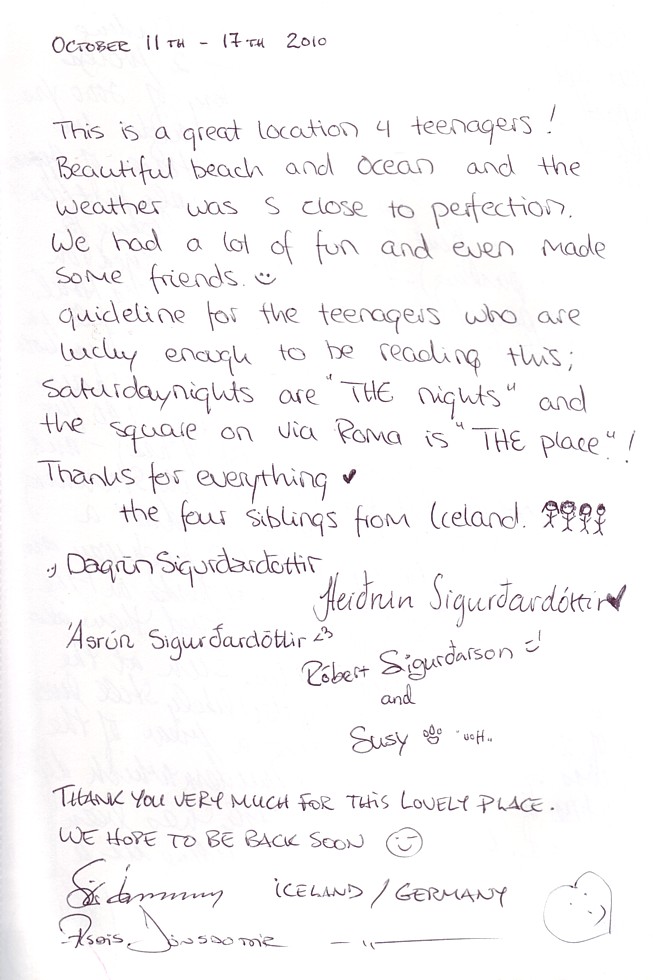 OCTOBER 11TH - 17TH 2010
This is a great location 4 teenagers!
Beautiful beach and ocean and the
weather was S close to perfection.
We had a lot of fun and even made
some friends. :)
guideline for the teenagers who are
lucky enough to be reading this;
Saturdaynights are "THE nights" and
the square on via Roma is "THE place"!
Thanks for everything ♥
the four siblings from Iceland.
;) Dagrún Sigurðardóttir
Heiðrún Sigurðardóttir ♥
Ásrún Sigurðardóttir <3
Róbert Sigurðarson =)
and
Susy
THANK YOU VERY MUCH FOR THIS LOVELY PLACE.
WE HOPE TO BE BACK SOON :)
ICELAND / GERMANY
Jónsdóttir — " —